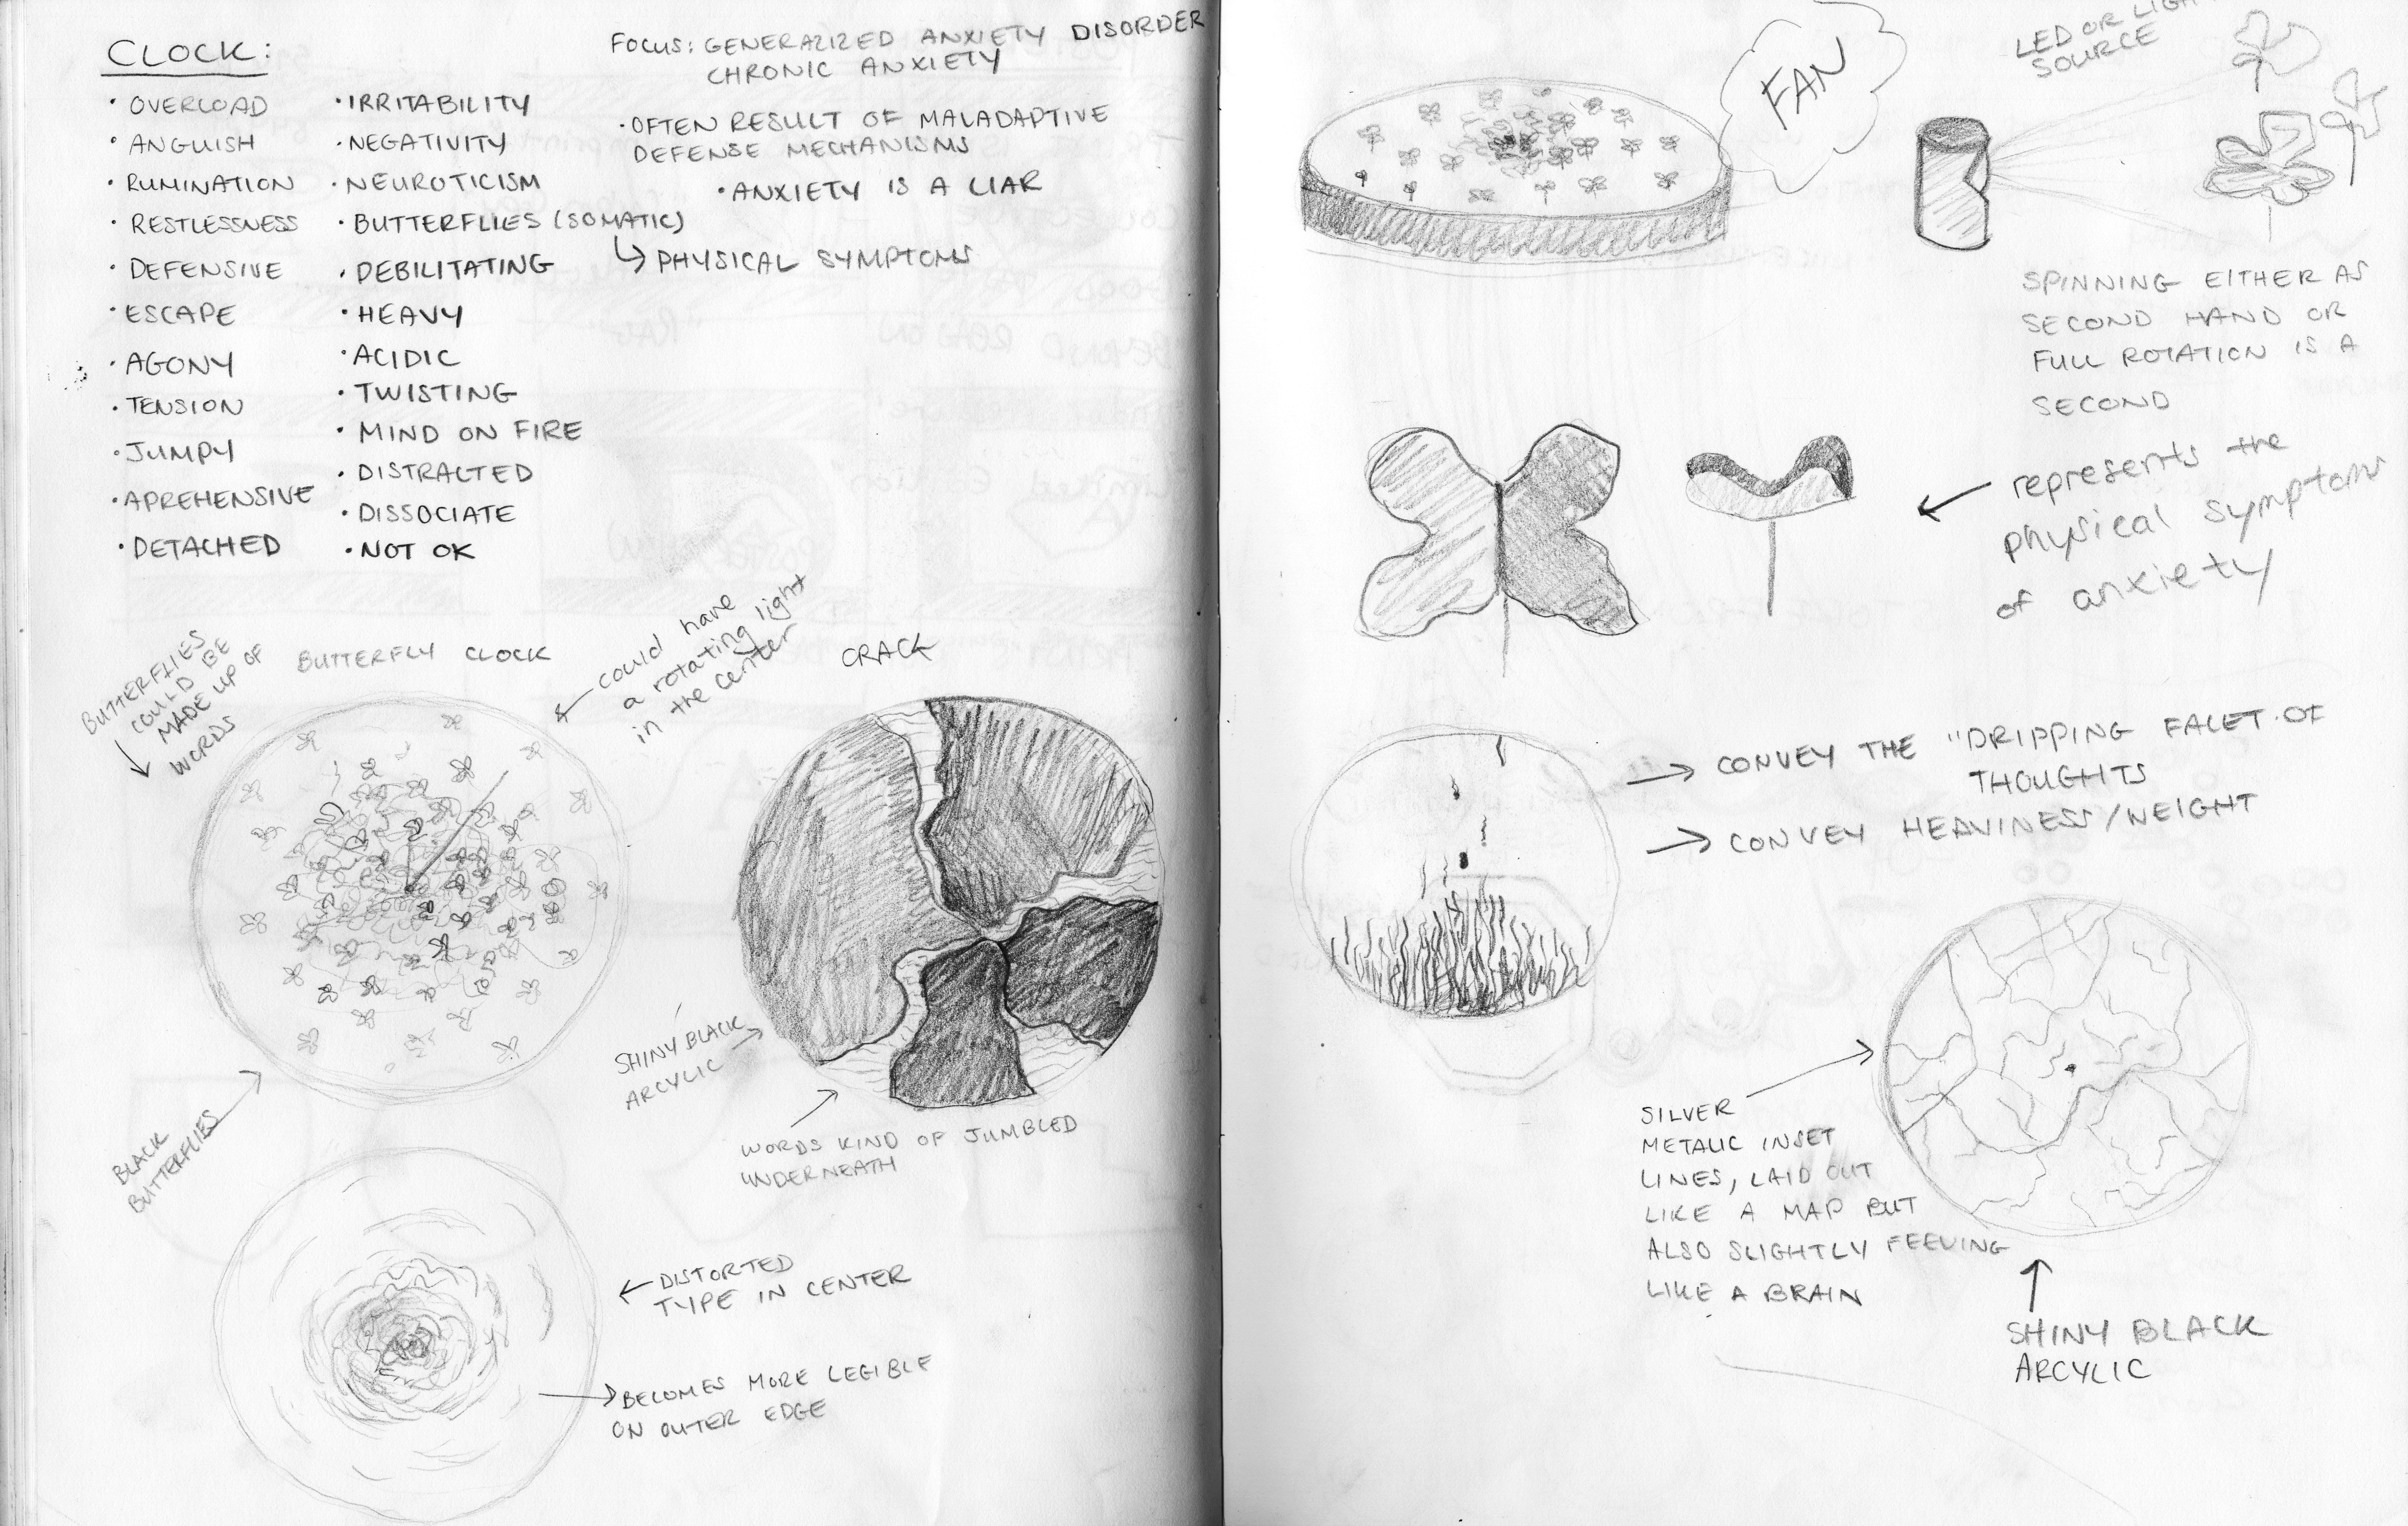 CLOCK:
• OVERLOAD
• ANGUISH
• RUMINATION
• RESTLESSNESS
• DEFENSIVE
• ESCAPE
• AGONY
• TENSION
• JUMPY
• APREHENSIVE
• DETACHED
• IRRITABILITY
• NEGATIVITY
• NEUROTICISM
• BUTTERFLIES (SOMATIC)
↳ PHYSICAL SYMPTOMS
• DEBILITATING
• HEAVY
• ACIDIC
• TWISTING
• MIND ON FIRE
• DISTRACTED
• DISSOCIATE
• NOT OK
FOCUS: GENERALIZED ANXIETY DISORDER
CHRONIC ANXIETY
• OFTEN RESULT OF MALADAPTIVE
DEFENSE MECHANISMS
• ANXIETY IS A LIAR
BUTTERFLIES
COULD BE
MADE UP OF
WORDS
BUTTERFLY CLOCK
could have
a rotating light
in the center
BLACK
BUTTERFLIES
CRACK
SHINY BLACK
ARCYLIC
WORDS KIND OF JUMBLED
UNDERNEATH
DISTORTED
TYPE IN CENTER
BECOMES MORE LEGIBLE
ON OUTER EDGE
FAN
LED OR LIGHT
SOURCE
SPINNING EITHER AS
SECOND HAND OR
FULL ROTATION IS A
SECOND
represents the
physical symptoms
of anxiety
CONVEY THE "DRIPPING FALET OF
THOUGHTS
CONVEY HEAVINESS/WEIGHT
SILVER
METALIC INSET
LINES, LAID OUT
LIKE A MAP BUT
ALSO SLIGHTLY FEELING
LIKE A BRAIN
SHINY BLACK
ARCYLIC